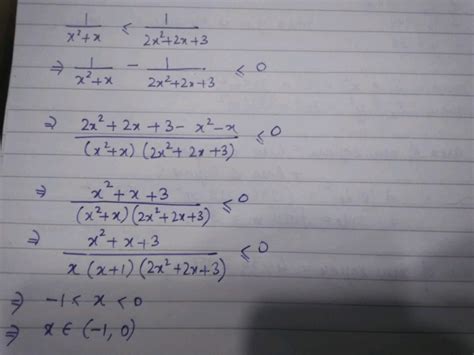 1/(x²+x) ≤ 1/(2x²+2x+3)
⇒ 1/(x²+x) - 1/(2x²+2x+3) ≤ 0
⇒ (2x²+2x+3-x²-x)/((x²+x)(2x²+2x+3)) ≤ 0
⇒ (x²+x+3)/((x²+x)(2x²+2x+3)) ≤ 0
⇒ (x²+x+3)/(x(x+1)(2x²+2x+3)) ≤ 0
⇒ -1 < x < 0
⇒ x ∈ (-1, 0)